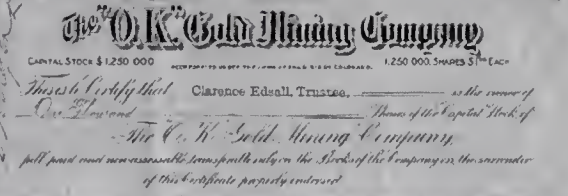 The "O.K." Gold Mining Company
CAPITAL STOCK $1,250,000 INCORPORATED UNDER THE LAWS OF THE STATE OF COLORADO. 1,250,000 SHARES $1.00 EACH
This is to Certify that Clarence Edsall, Trustee, is the owner of
One Thousand Shares of the Capital Stock of
The O.K. Gold Mining Company,
full paid and non-assessable transferable only on the Books of the Company on the surrender
of this Certificate properly endorsed